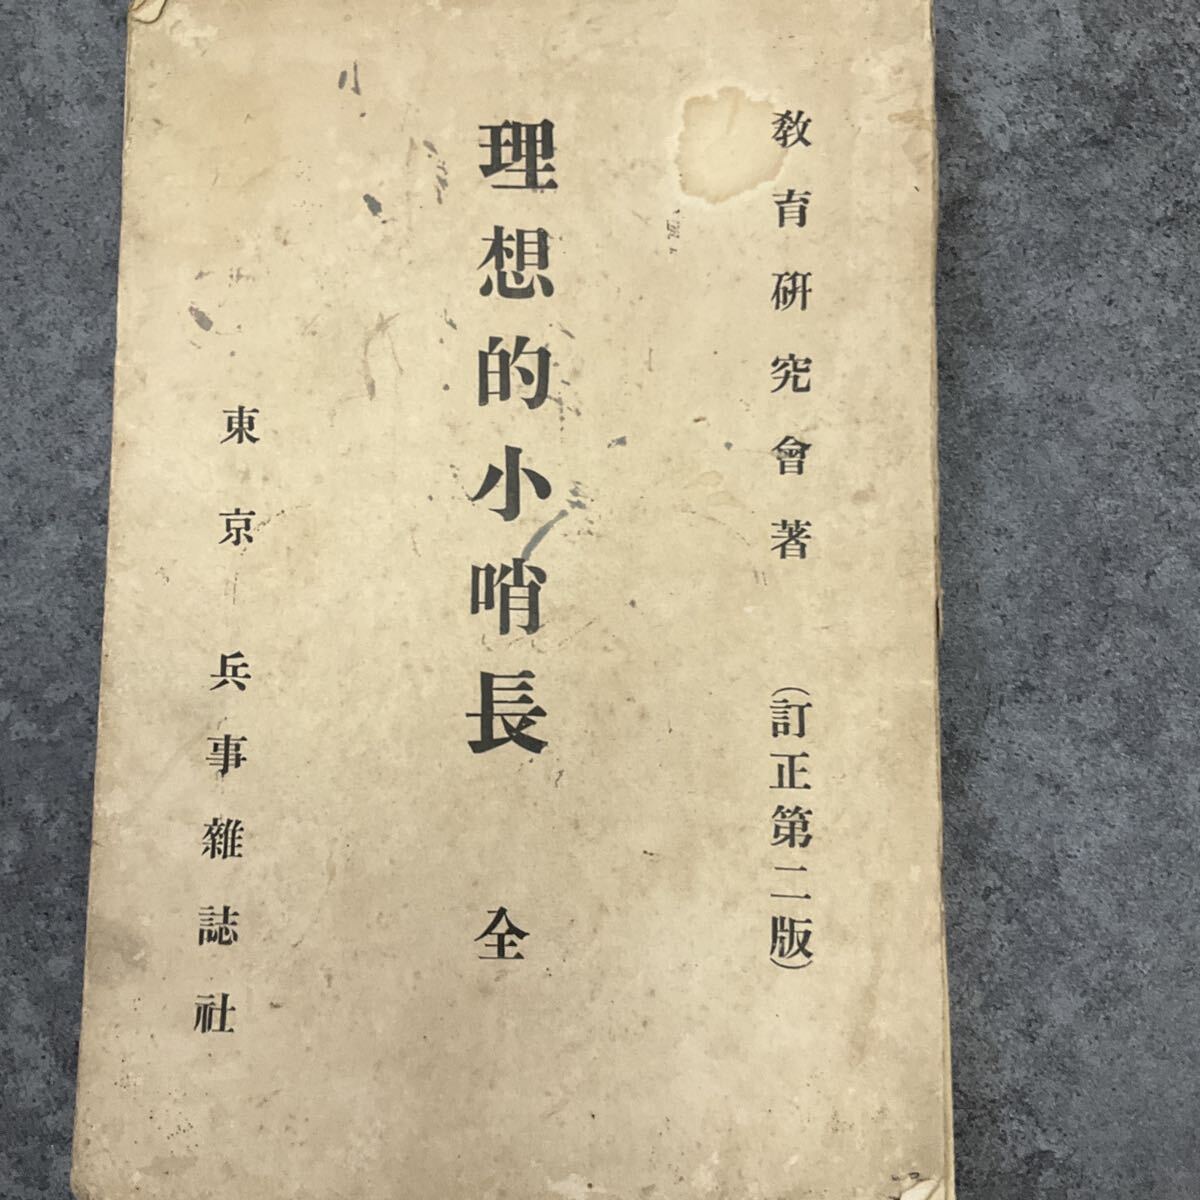 教育研究會著 (訂正第二版)
理想的小哨長 全
東京 兵事雜誌社